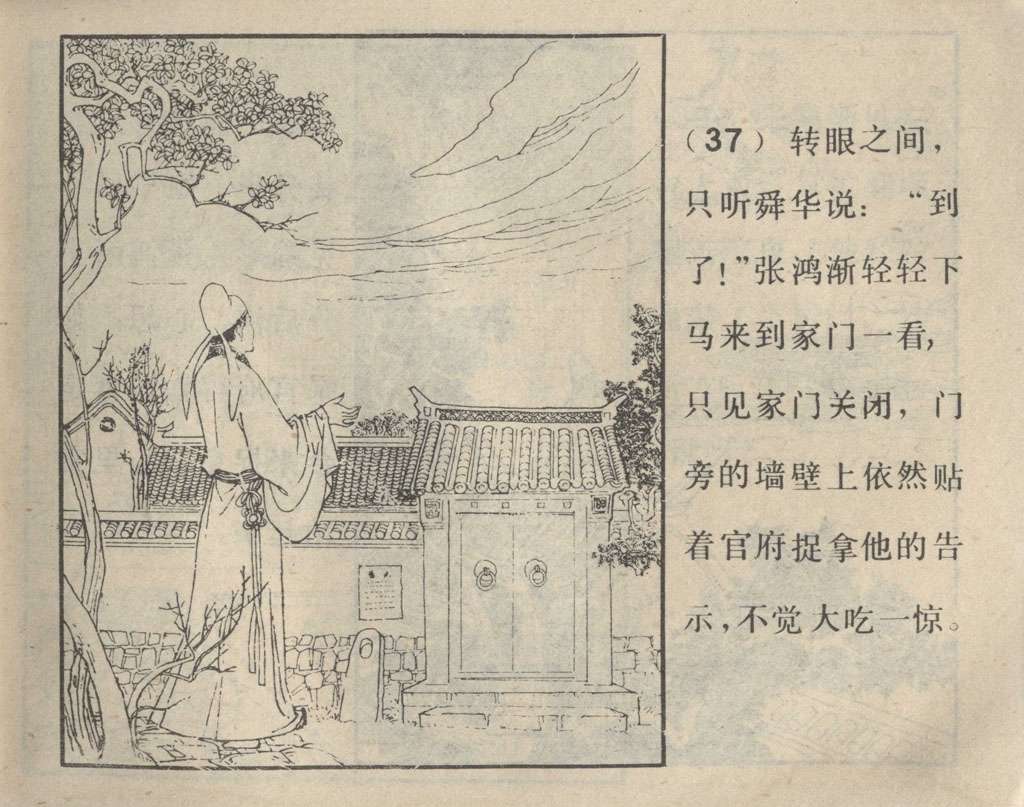 （37）转眼之间，
只听舜华说：“到
了！”张鸿渐轻轻下
马来到家门一看，
只见家门关闭，门
旁的墙壁上依然贴
着官府捉拿他的告
示，不觉大吃一惊。